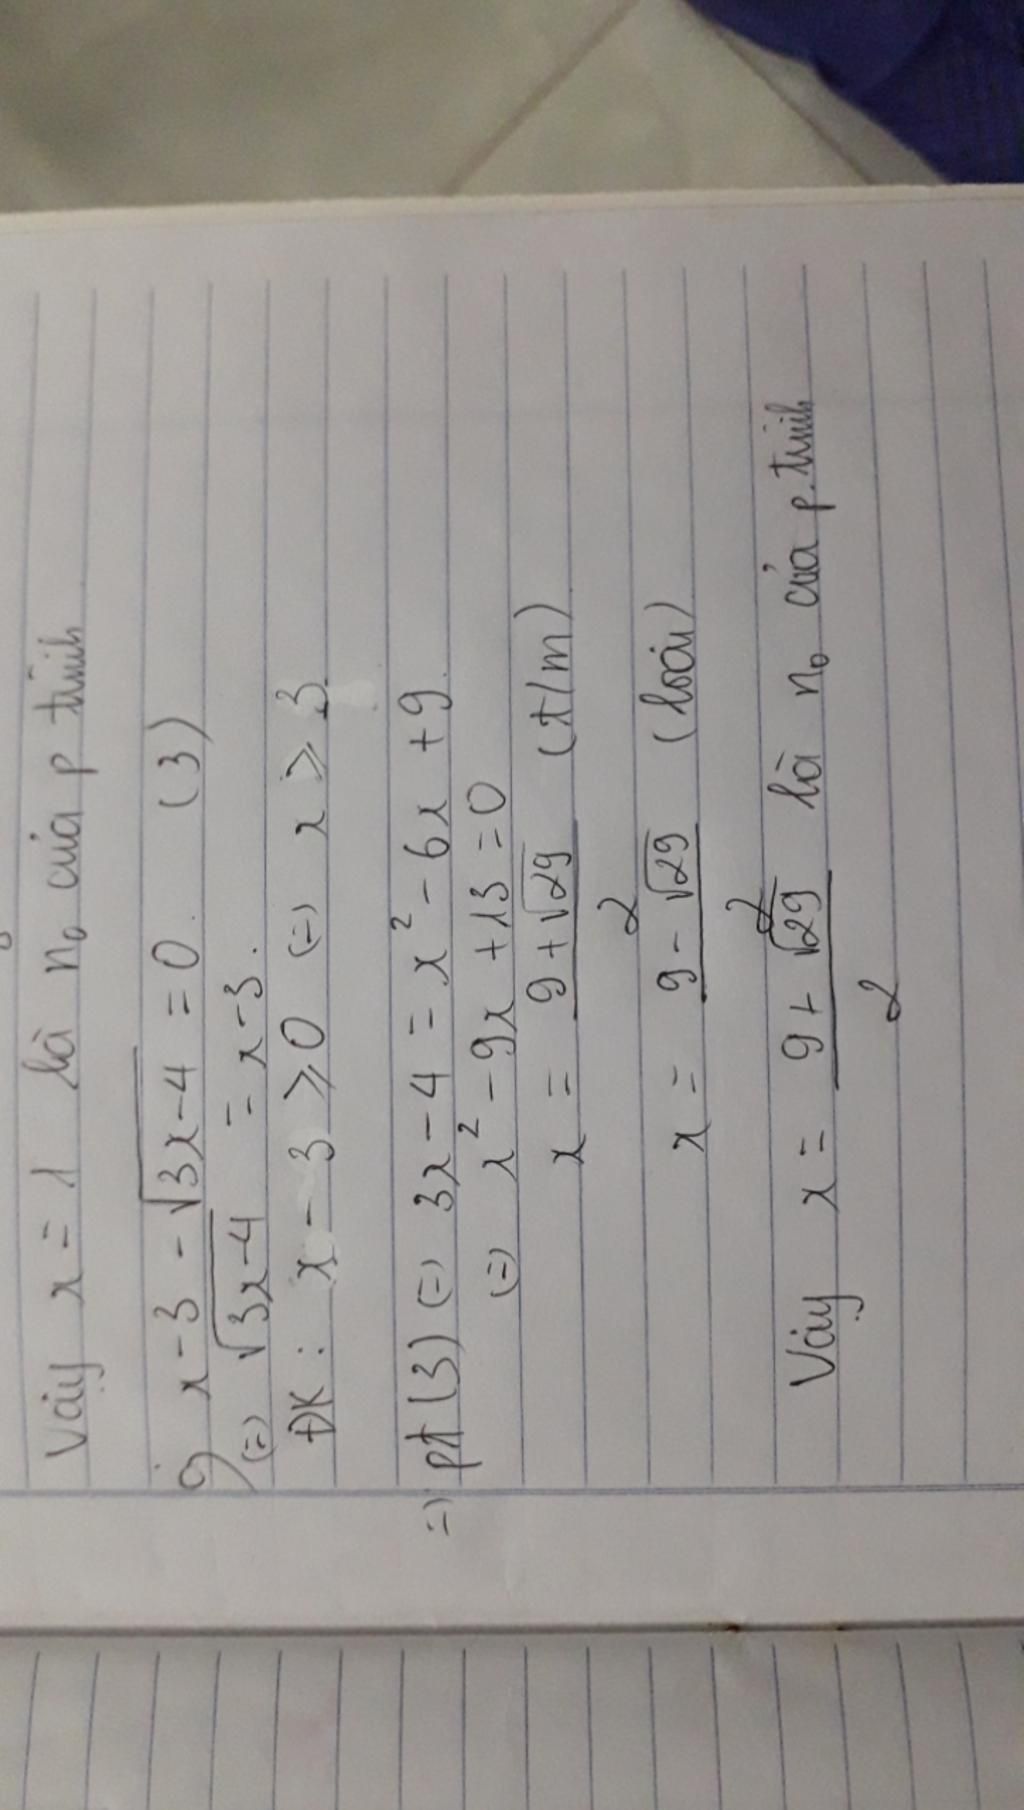 Vậy x = 1 là n₀ của p trình
g, x - 3 - √(3x-4) = 0. (3)
(=) √(3x-4) = x-3.
ĐK: x - 3 ⩾ 0 (=) x ⩾ 3
=) pt (3) (=) 3x - 4 = x² - 6x + 9.
(=) x² - 9x + 13 = 0
x = (9 + √29)/2 (t/m)
x = (9 - √29)/2 (loại)
Vậy x = (9 + √29)/2 là n₀ của p.trình